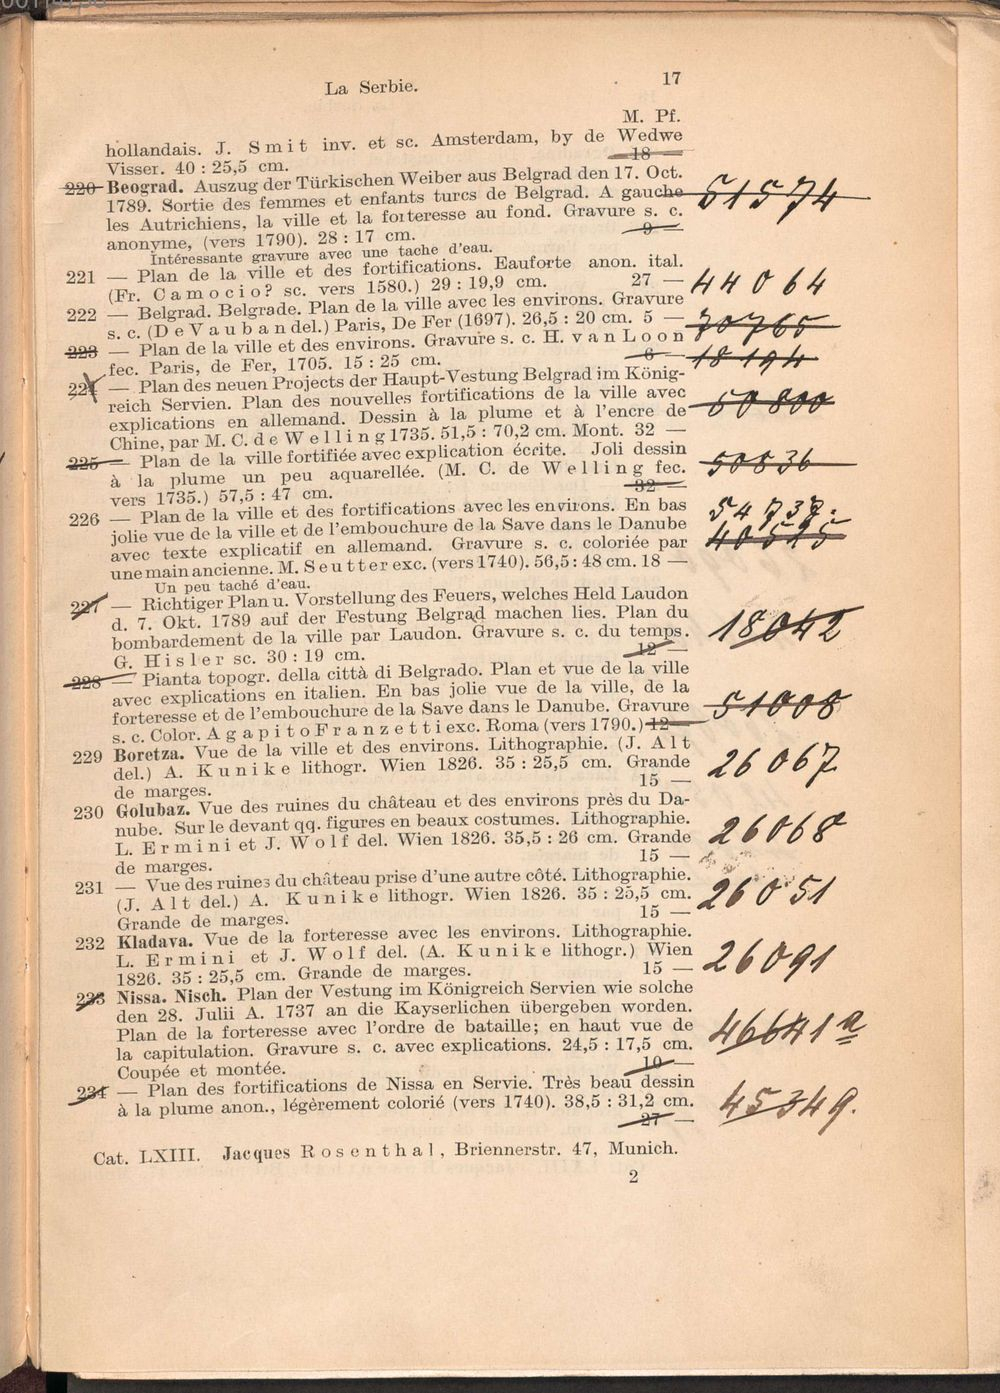 La Serbie. 17
M. Pf.
hollandais. J. Smit inv. et sc. Amsterdam, by de Wedwe
Visser. 40 : 25,5 cm. 18 —
220 Beograd. Auszug der Türkischen Weiber aus Belgrad den 17. Oct.
1789. Sortie des femmes et enfants turcs de Belgrad. A gauche 51574
les Autrichiens, la ville et la forteresse au fond. Gravure s. c.
anonyme, (vers 1790). 28 : 17 cm. 9 —
Intéressante gravure avec une tache d'eau.
221 — Plan de la ville et des fortifications. Eauforte anon. ital.
(Fr. Camocio? sc. vers 1580.) 29 : 19,9 cm. 27 — 44064
222 — Belgrad. Belgrade. Plan de la ville avec les environs. Gravure
s. c. (De Vauban del.) Paris, De Fer (1697). 26,5 : 20 cm. 5 — 70765
223 — Plan de la ville et des environs. Gravure s. c. H. van Loon
fec. Paris, de Fer, 1705. 15 : 25 cm. 6 — 18194
224 — Plan des neuen Projects der Haupt-Vestung Belgrad im König-
reich Servien. Plan des nouvelles fortifications de la ville avec
explications en allemand. Dessin à la plume et à l'encre de 50800
Chine, par M. C. de Welling 1735. 51,5 : 70,2 cm. Mont. 32 —
225 — Plan de la ville fortifiée avec explication écrite. Joli dessin
à la plume un peu aquarellée. (M. C. de Welling fec. 50836
vers 1735.) 57,5 : 47 cm. 32 —
226 — Plan de la ville et des fortifications avec les environs. En bas
jolie vue de la ville et de l'embouchure de la Save dans le Danube
avec texte explicatif en allemand. Gravure s. c. coloriée par
une main ancienne. M. Seutter exc. (vers 1740). 56,5 : 48 cm. 18 —
Un peu taché d'eau.
227 — Richtiger Plan u. Vorstellung des Feuers, welches Held Laudon
d. 7. Okt. 1789 auf der Festung Belgrad machen lies. Plan du
bombardement de la ville par Laudon. Gravure s. c. du temps. 18042
G. Hisler sc. 30 : 19 cm. 12 —
228 — Pianta topogr. della città di Belgrado. Plan et vue de la ville
avec explications en italien. En bas jolie vue de la ville, de la
forteresse et de l'embouchure de la Save dans le Danube. Gravure 51008
s. c. Color. Agapito Franzetti exc. Roma (vers 1790.) 12 —
229 Boretza. Vue de la ville et des environs. Lithographie. (J. Alt
del.) A. Kunike lithogr. Wien 1826. 35 : 25,5 cm. Grande 26067
de marges. 15 —
230 Golubaz. Vue des ruines du château et des environs près du Da-
nube. Sur le devant qq. figures en beaux costumes. Lithographie.
L. Ermini et J. Wolf del. Wien 1826. 35,5 : 26 cm. Grande 26068
de marges. 15 —
231 — Vue des ruines du château prise d'une autre côté. Lithographie.
(J. Alt del.) A. Kunike lithogr. Wien 1826. 35 : 25,5 cm. 26051
Grande de marges. 15 —
232 Kladava. Vue de la forteresse avec les environs. Lithographie.
L. Ermini et J. Wolf del. (A. Kunike lithogr.) Wien 26091
1826. 35 : 25,5 cm. Grande de marges. 15 —
233 Nissa. Nisch. Plan der Vestung im Königreich Servien wie solche
den 28. Julii A. 1737 an die Kayserlichen übergeben worden.
Plan de la forteresse avec l'ordre de bataille; en haut vue de 46641 a
la capitulation. Gravure s. c. avec explications. 24,5 : 17,5 cm.
Coupée et montée. 10 —
234 — Plan des fortifications de Nissa en Servie. Très beau dessin
à la plume anon., légèrement colorié (vers 1740). 38,5 : 31,2 cm. 45349.
27 —
Cat. LXIII. Jacques Rosenthal, Briennerstr. 47, Munich.
2